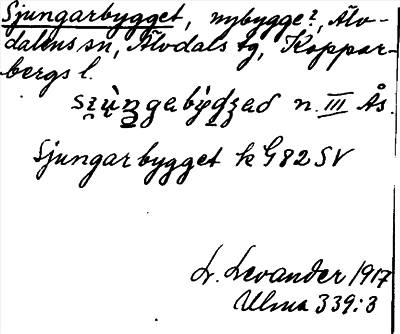 Sjungarbygget, nybygge?, Älv-
dalens sn, Älvdals tg, Koppar-
bergs l.
n. III Ås.
Sjungarbygget k G82SV
L. Levander 1917
Ulma 339:3